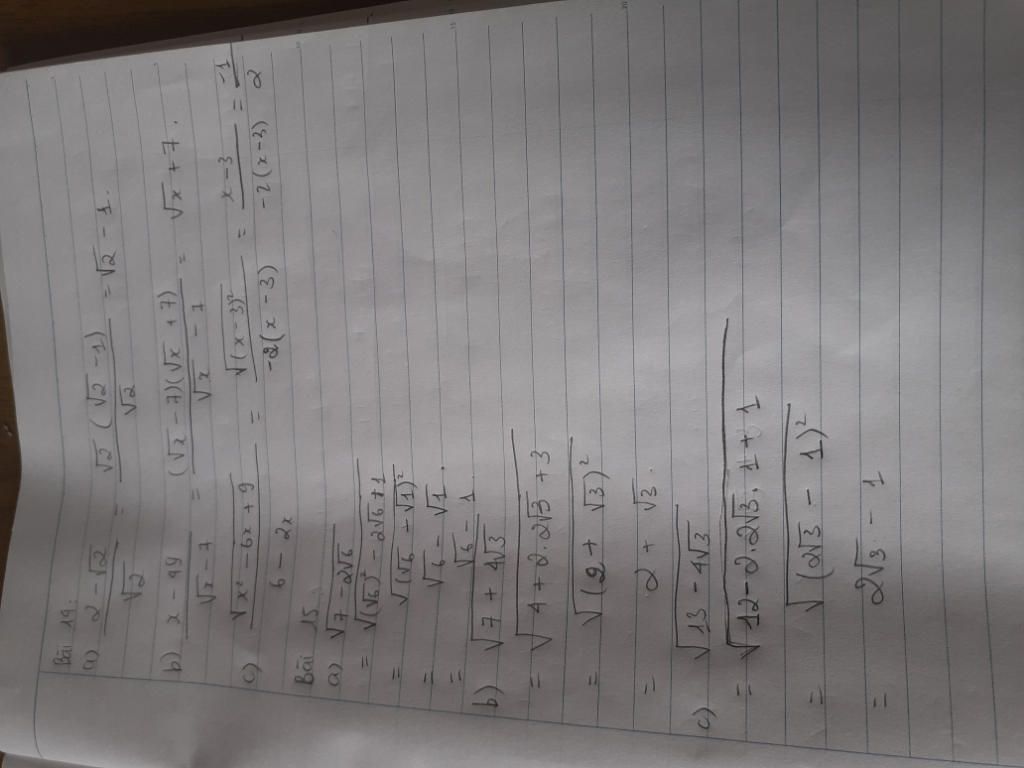 Bài 14.
a) (2 - √2)/√2 = √2(√2 - 1)/√2 = √2 - 1.
b) (x - 49)/(√x - 7) = (√x - 7)(√x + 7)/(√x - 7) = √x + 7.
c) √(x² - 6x + 9)/(6 - 2x) = √(x - 3)²/(-2(x - 3)) = (x - 3)/(-2(x - 3)) = -1/2
Bài 15
a) √(7 - 2√6)
= √((√6)² - 2√6 + 1)
= √(√6 - √1)²
= √6 - √1.
= √6 - 1
b) √(7 + 4√3)
= √(4 + 2.2√3 + 3)
= √(2 + √3)²
= 2 + √3.
c) √(13 - 4√3)
= √(12 - 2.2√3.1 + 1)
= √(2√3 - 1)²
= 2√3 - 1